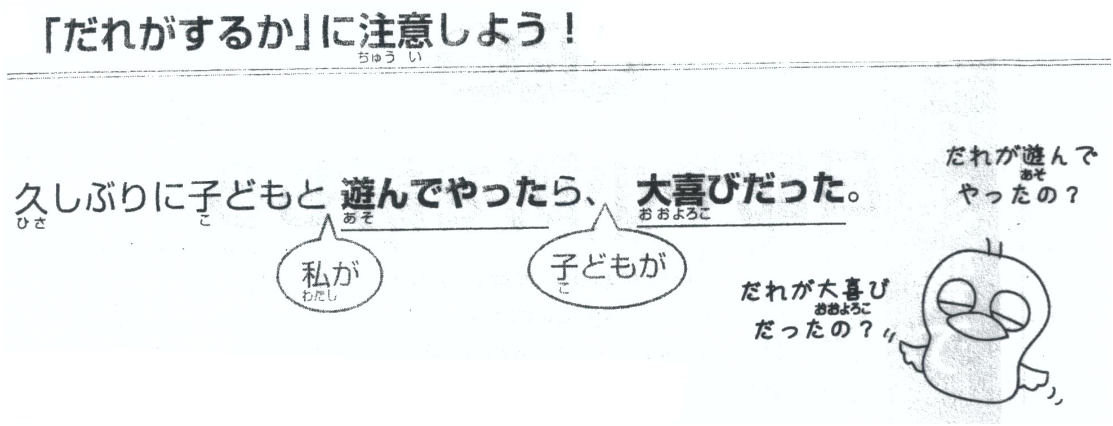 「だれがするか」に注意しよう！
ちゅう い
久しぶりに子どもと 遊んでやったら、 大喜びだった。
ひさ こ あそ おおよろこ
私が
わたし
子どもが
こ
だれが遊んで
あそ
やったの？
だれが大喜び
おおよろこ
だったの？